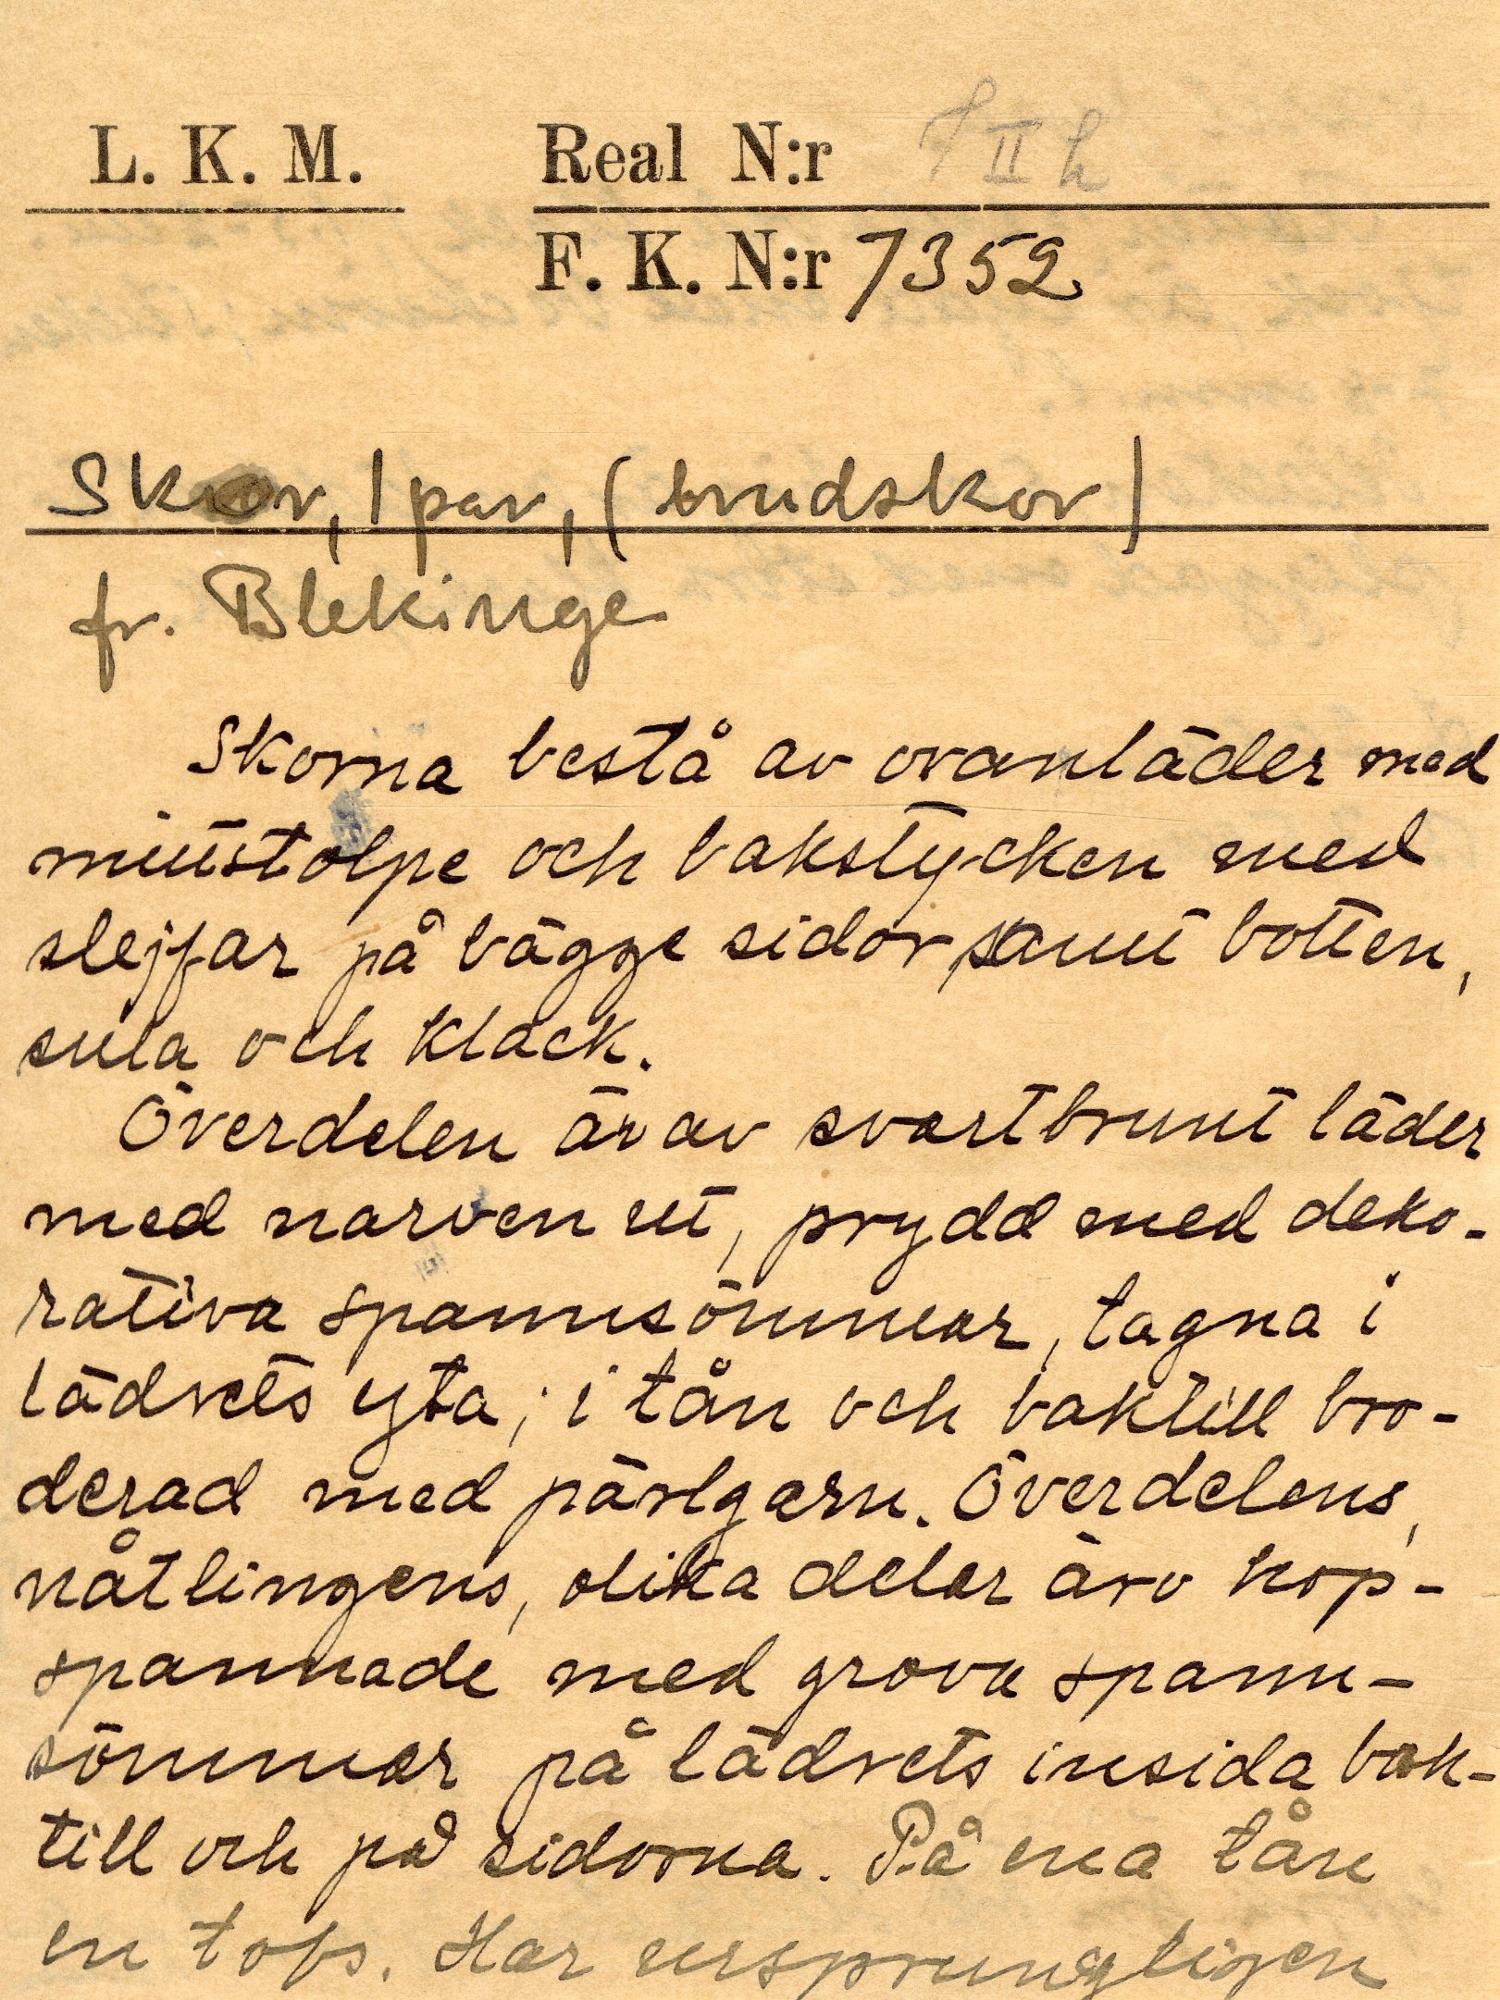 L. K. M. Real N:r II h
F. K. N:r 7352
Skor, 1 par, (brudskor)
fr. Blekinge
Skorna bestå av ovanläder med
mittstolpe och bakstycken med
slejfar på bägge sidor, samt botten,
sula och klack.
Överdelen är av svartbrunt läder
med narven ut, prydd med deko-
rativa spannsömmar, tagna i
lädrets yta; i tån och baktill bro-
derad med pärlgarn. Överdelens,
nåtlingens, olika delar äro hop-
spannade med grova spann-
sömmar på lädrets insida bak-
till och på sidorna. På ena tån
en tofs. Har ursprungligen